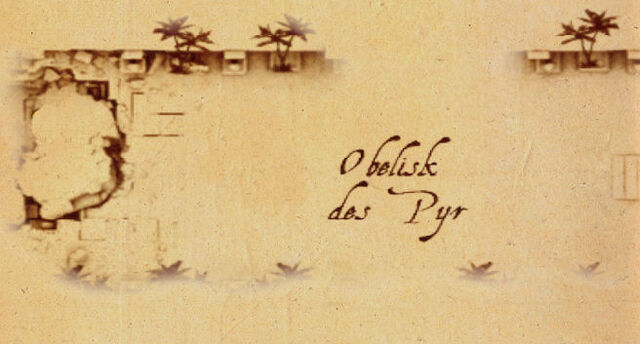 Obelisk
des Pyr